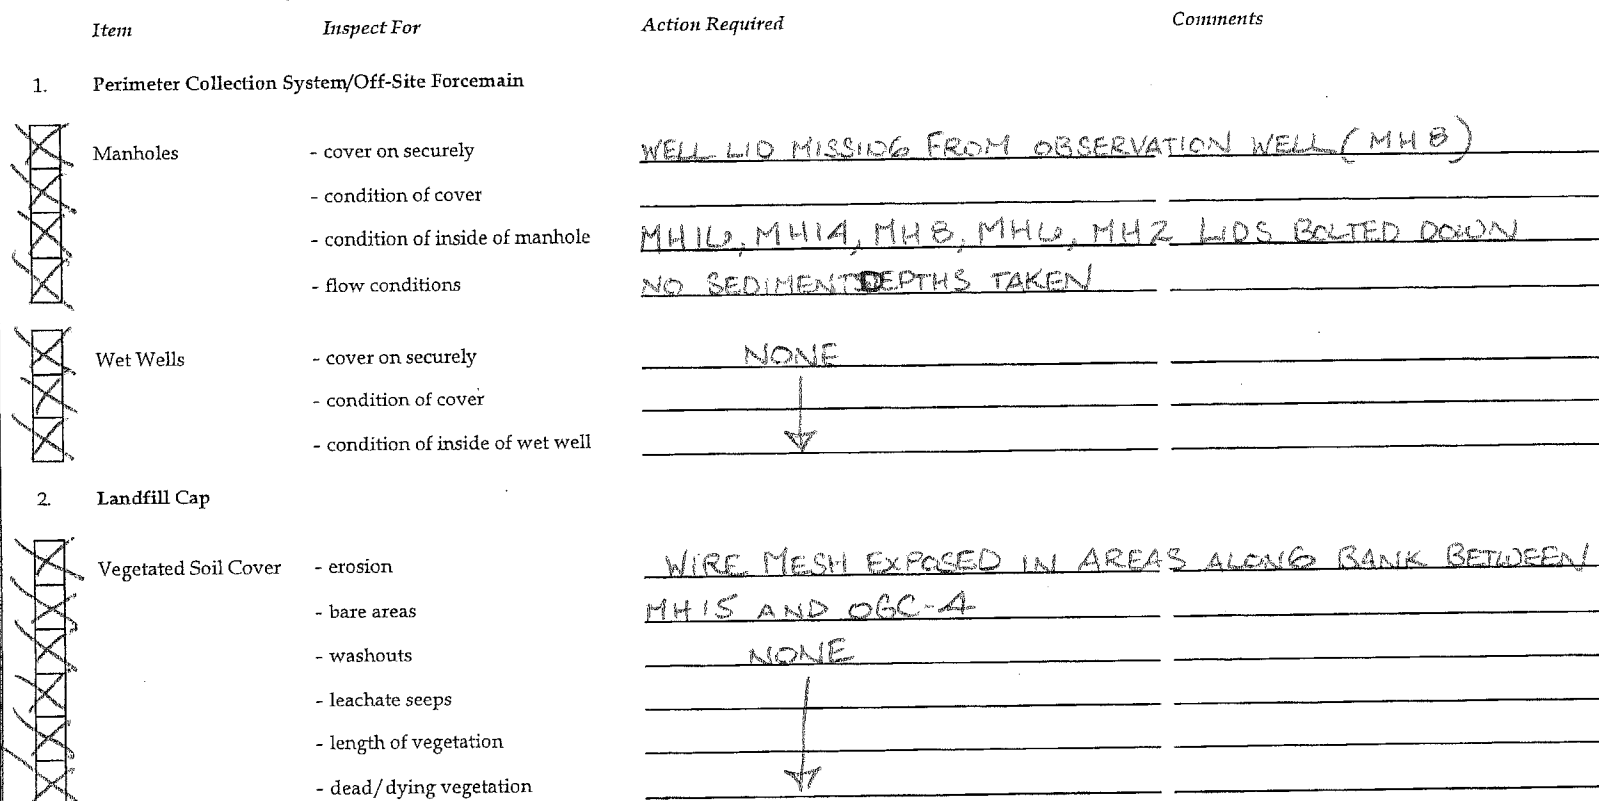 Item Inspect For Action Required Comments
1. Perimeter Collection System/Off-Site Forcemain
Manholes - cover on securely WELL LID MISSING FROM OBSERVATION WELL (MH 8)
- condition of cover
- condition of inside of manhole MH16, MH14, MH8, MH6, MH2 LIDS BOLTED DOWN
- flow conditions NO SEDIMENT DEPTHS TAKEN
Wet Wells - cover on securely NONE
- condition of cover
- condition of inside of wet well
2. Landfill Cap
Vegetated Soil Cover - erosion WIRE MESH EXPOSED IN AREAS ALONG BANK BETWEEN
- bare areas MH15 AND OGC-4
- washouts NONE
- leachate seeps
- length of vegetation
- dead/dying vegetation